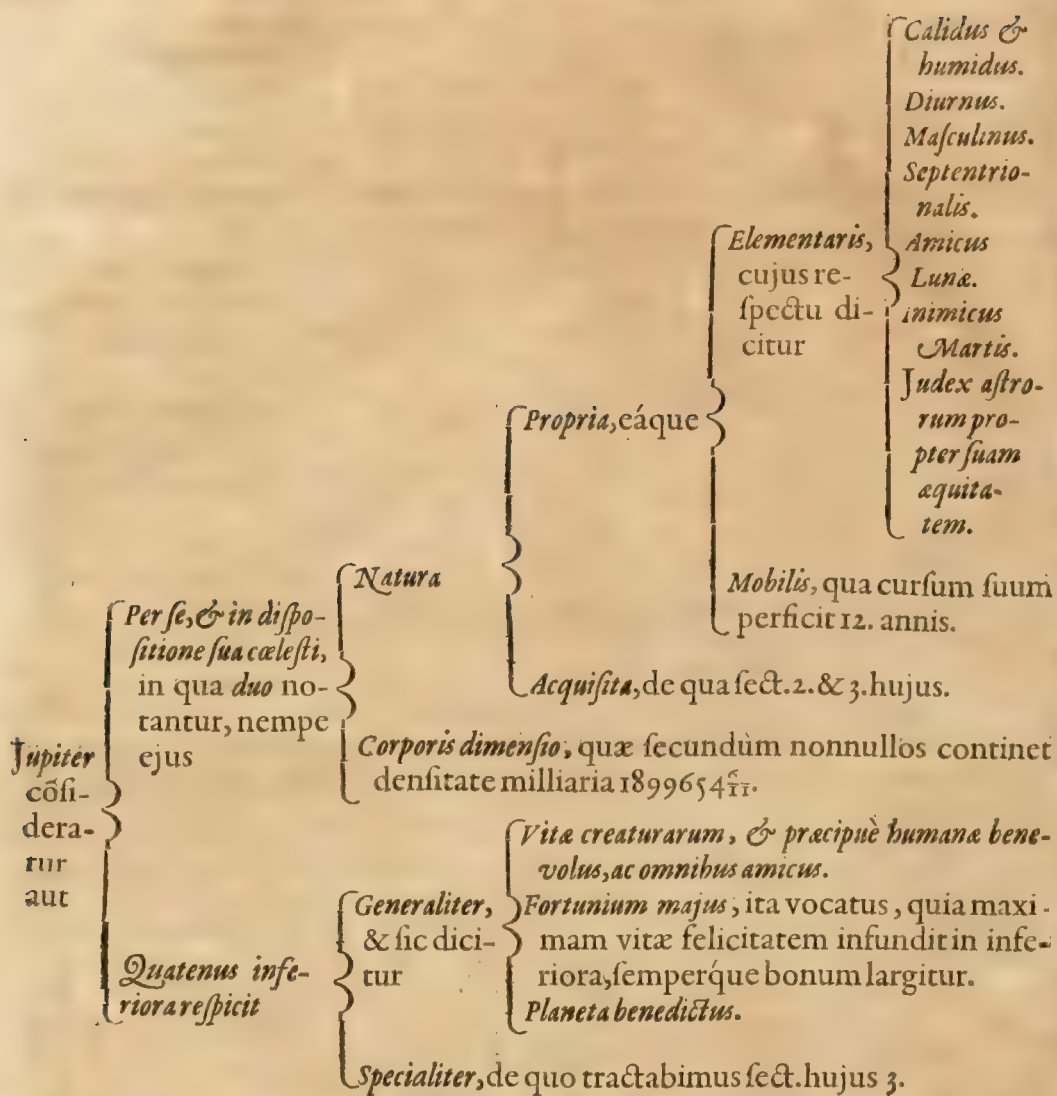 Jupiter
cõſi-
dera-
tur
aut
Per ſe, & in diſpo-
ſitione ſua cæleſti,
in qua duo no-
tantur, nempe
ejus
Natura
Propria, eáque
Elementaris,
cujus re-
ſpectu di-
citur
Calidus &
humidus.
Diurnus.
Maſculinus.
Septentrio-
nalis.
Amicus
Lunæ.
inimicus
Martis.
Judex aſtro-
rum pro-
pter ſuam
æquita-
tem.
Mobilis, qua curſum ſuum
perficit 12. annis.
Acquiſita, de qua ſect. 2. & 3. hujus.
Corporis dimenſio, quæ ſecundùm nonnullos continet
denſitate milliaria 1899654 6/11.
Quatenus infe-
riora reſpicit
Generaliter,
& ſic dici-
tur
Vitæ creaturarum, & præcipuè humanæ bene-
volus, ac omnibus amicus.
Fortunium majus, ita vocatus, quia maxi-
mam vitæ felicitatem infundit in infe-
riora, ſemperq́ue bonum largitur.
Planeta benedictus.
Specialiter, de quo tractabimus ſect. hujus 3.